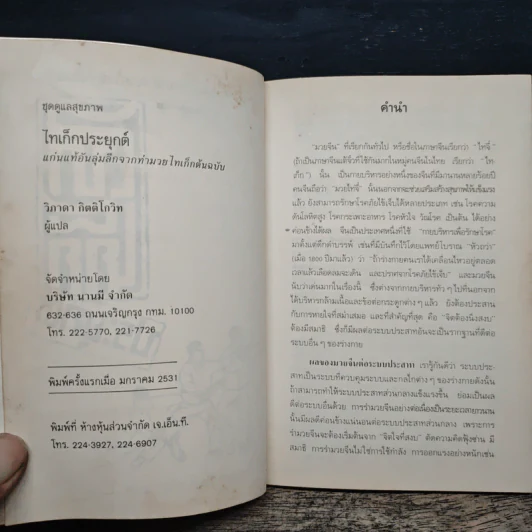 ชุดดูแลสุขภาพ
ไทเก็กประยุกต์
แก่นแท้อันลุ่มลึกจากท่ามวยไทเก็กต้นฉบับ
วิภาดา กิตติโกวิท
ผู้แปล
จัดจำหน่ายโดย
บริษัท นานมี จำกัด
632-636 ถนนเจริญกรุง กทม. 10100
โทร. 222-5770, 221-7726
พิมพ์ครั้งแรกเมื่อ มกราคม 2531
พิมพ์ที่ ห้างหุ้นส่วนจำกัด เจ.เอ็น.ที.
โทร. 224-3927, 224-6907
คำนำ
"มวยจีน" ที่เรียกกันทั่วไป หรือชื่อในภาษาจีนเรียกว่า "ไท่จี๋"
(ถ้าเป็นภาษาจีนแต้จิ๋วที่ใช้กันมากในหมู่คนจีนในไทย เรียกว่า "ไท-
เก็ก") นั้น เป็นกายบริหารอย่างหนึ่งของจีนที่มีมานานหลายร้อยปี
คนจีนถือว่า "มวยไท่จี๋" นั้นนอกจากจะช่วยเสริมสร้างสุขภาพให้แข็งแรง
แล้ว ยังสามารถรักษาโรคภัยไข้เจ็บได้หลายประเภท เช่น โรคความ
ดันโลหิตสูง โรคกระเพาะอาหาร โรคหัวใจ วัณโรค เป็นต้น ได้อย่าง
ค่อนข้างได้ผล จีนเป็นประเทศหนึ่งที่ใช้ "กายบริหารเพื่อรักษาโรค"
มาตั้งแต่ดึกดำบรรพ์ เช่นที่มีบันทึกไว้โดยแพทย์โบราณ "หัวถว่อ"
(เมื่อ 1800 ปีมาแล้ว) ว่า "ถ้าร่างกายคนเราได้เคลื่อนไหวอยู่ตลอด
เวลาแล้วเลือดลมจะเดิน และปราศจากโรคภัยไข้เจ็บ" และมวยจีน
นับว่าเด่นมากในเรื่องนี้ ซึ่งต่างจากกายบริหารทั่ว ๆ ไปที่นอกจาก
ได้บริหารกล้ามเนื้อและข้อต่อกระดูกต่าง ๆ แล้ว ยังต้องประสาน
กับการหายใจที่สม่ำเสมอ และที่สำคัญที่สุด คือ "จิตต้องนิ่งสงบ"
ต้องมีสมาธิ ซึ่งก็มีผลต่อระบบประสาทอันจะเป็นรากฐานที่ดีต่อ
ระบบอื่น ๆ ของร่างกาย
ผลของมวยจีนต่อระบบประสาท เรารู้กันดีว่า ระบบประ-
สาทเป็นระบบที่ควบคุมระบบและกลไกต่าง ๆ ของร่างกายดังนั้น
ถ้าสามารถทำให้ระบบประสาทส่วนกลางแข็งแรงขึ้น ย่อมเป็นผลดี
ต่อระบบอื่นด้วย การรำมวยจีนอย่างต่อเนื่องเป็นระยะเวลายาวนาน
นั้นมีผลดีค่อนข้างแน่นอนต่อระบบประสาทส่วนกลาง เพราะการ
รำมวยจีนจะต้องเริ่มต้นจาก "จิตใจที่สงบ" ตัดความคิดฟุ้งซ่าน มี
สมาธิ การรำมวยจีนไม่ใช่การใช้กำลัง การออกแรงอย่างหนักเช่น